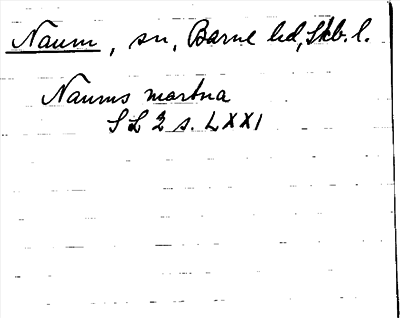 Naum, sn, Barne hd, Skb. l.
Naums marbna
SL 2 s. LXXI